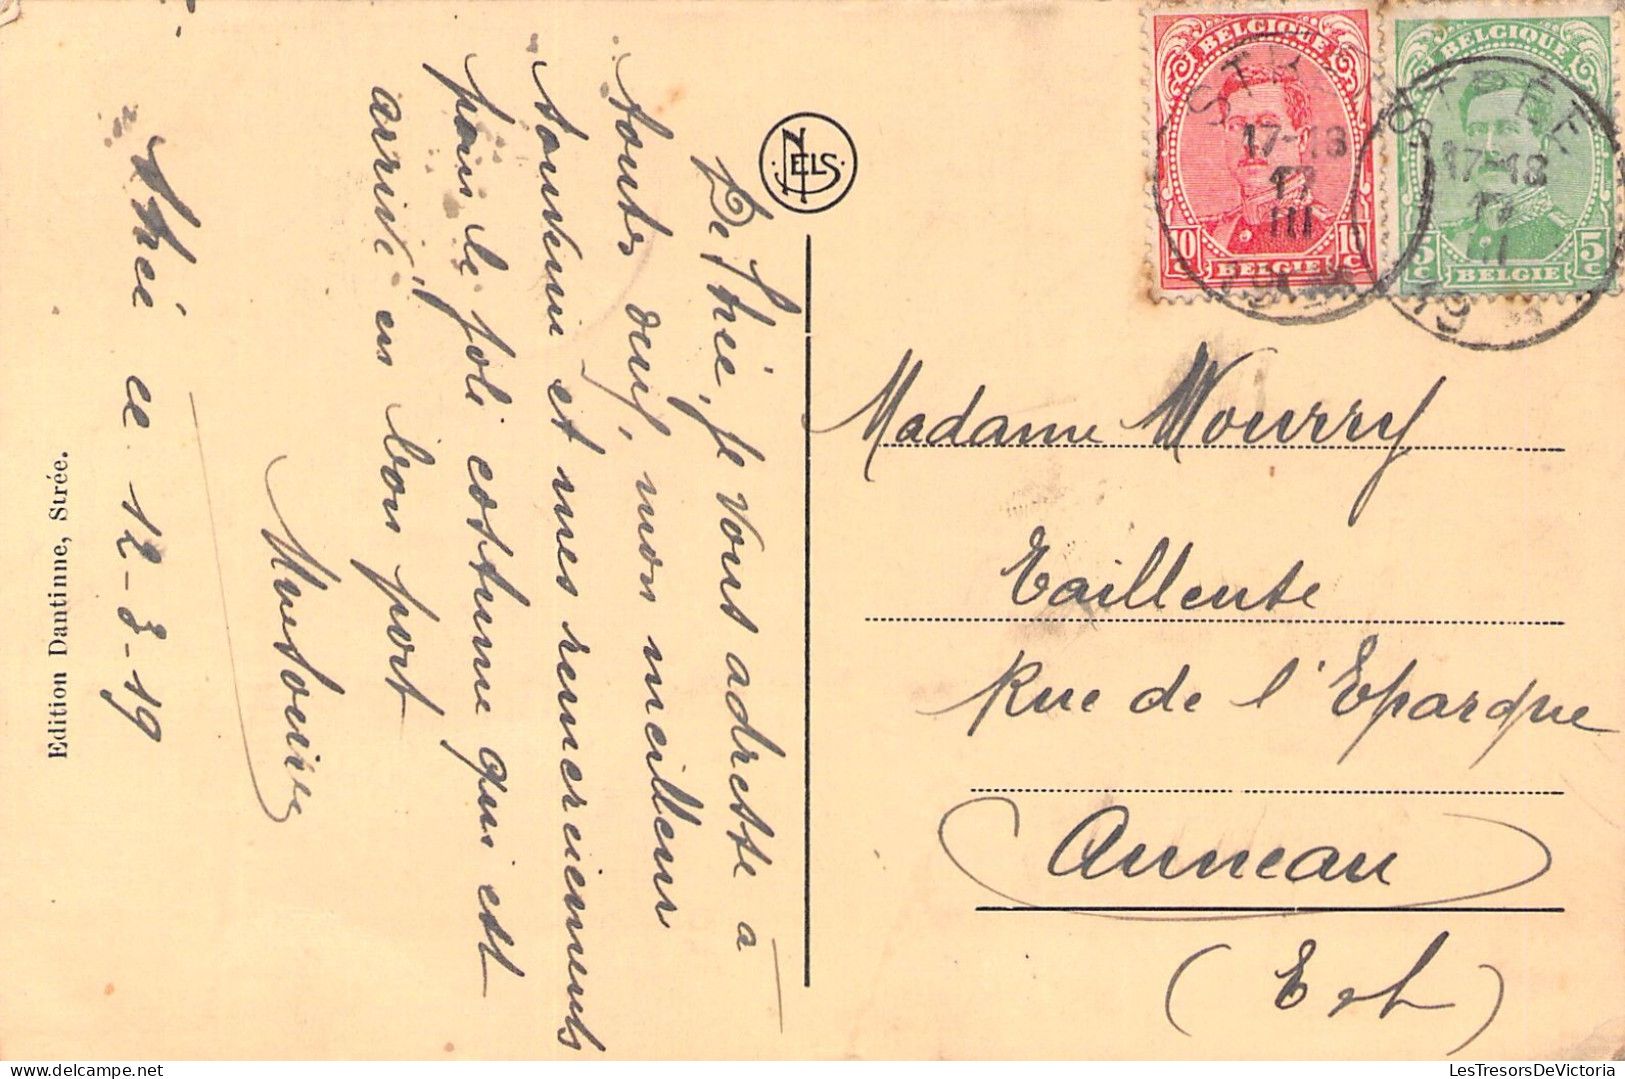 Thée ce 12-3-19
De Thée, je vous adresse à
toutes deux, mon meilleur
souvenir et mes remerciements
pour le joli costume qui est
arrivé en bon port
Edition Dantinne, Strée.
NELS
BELGIQUE
10 C
10 C
BELGIE
BELGIQUE
5 C
5 C
BELGIE
17-18
17
III
STRÉE
17-18
17
III
19
Madame Mourry
Tailleuse
Rue de l'Epargne
Auneau
(Est)
LesTresorsDeVictoria